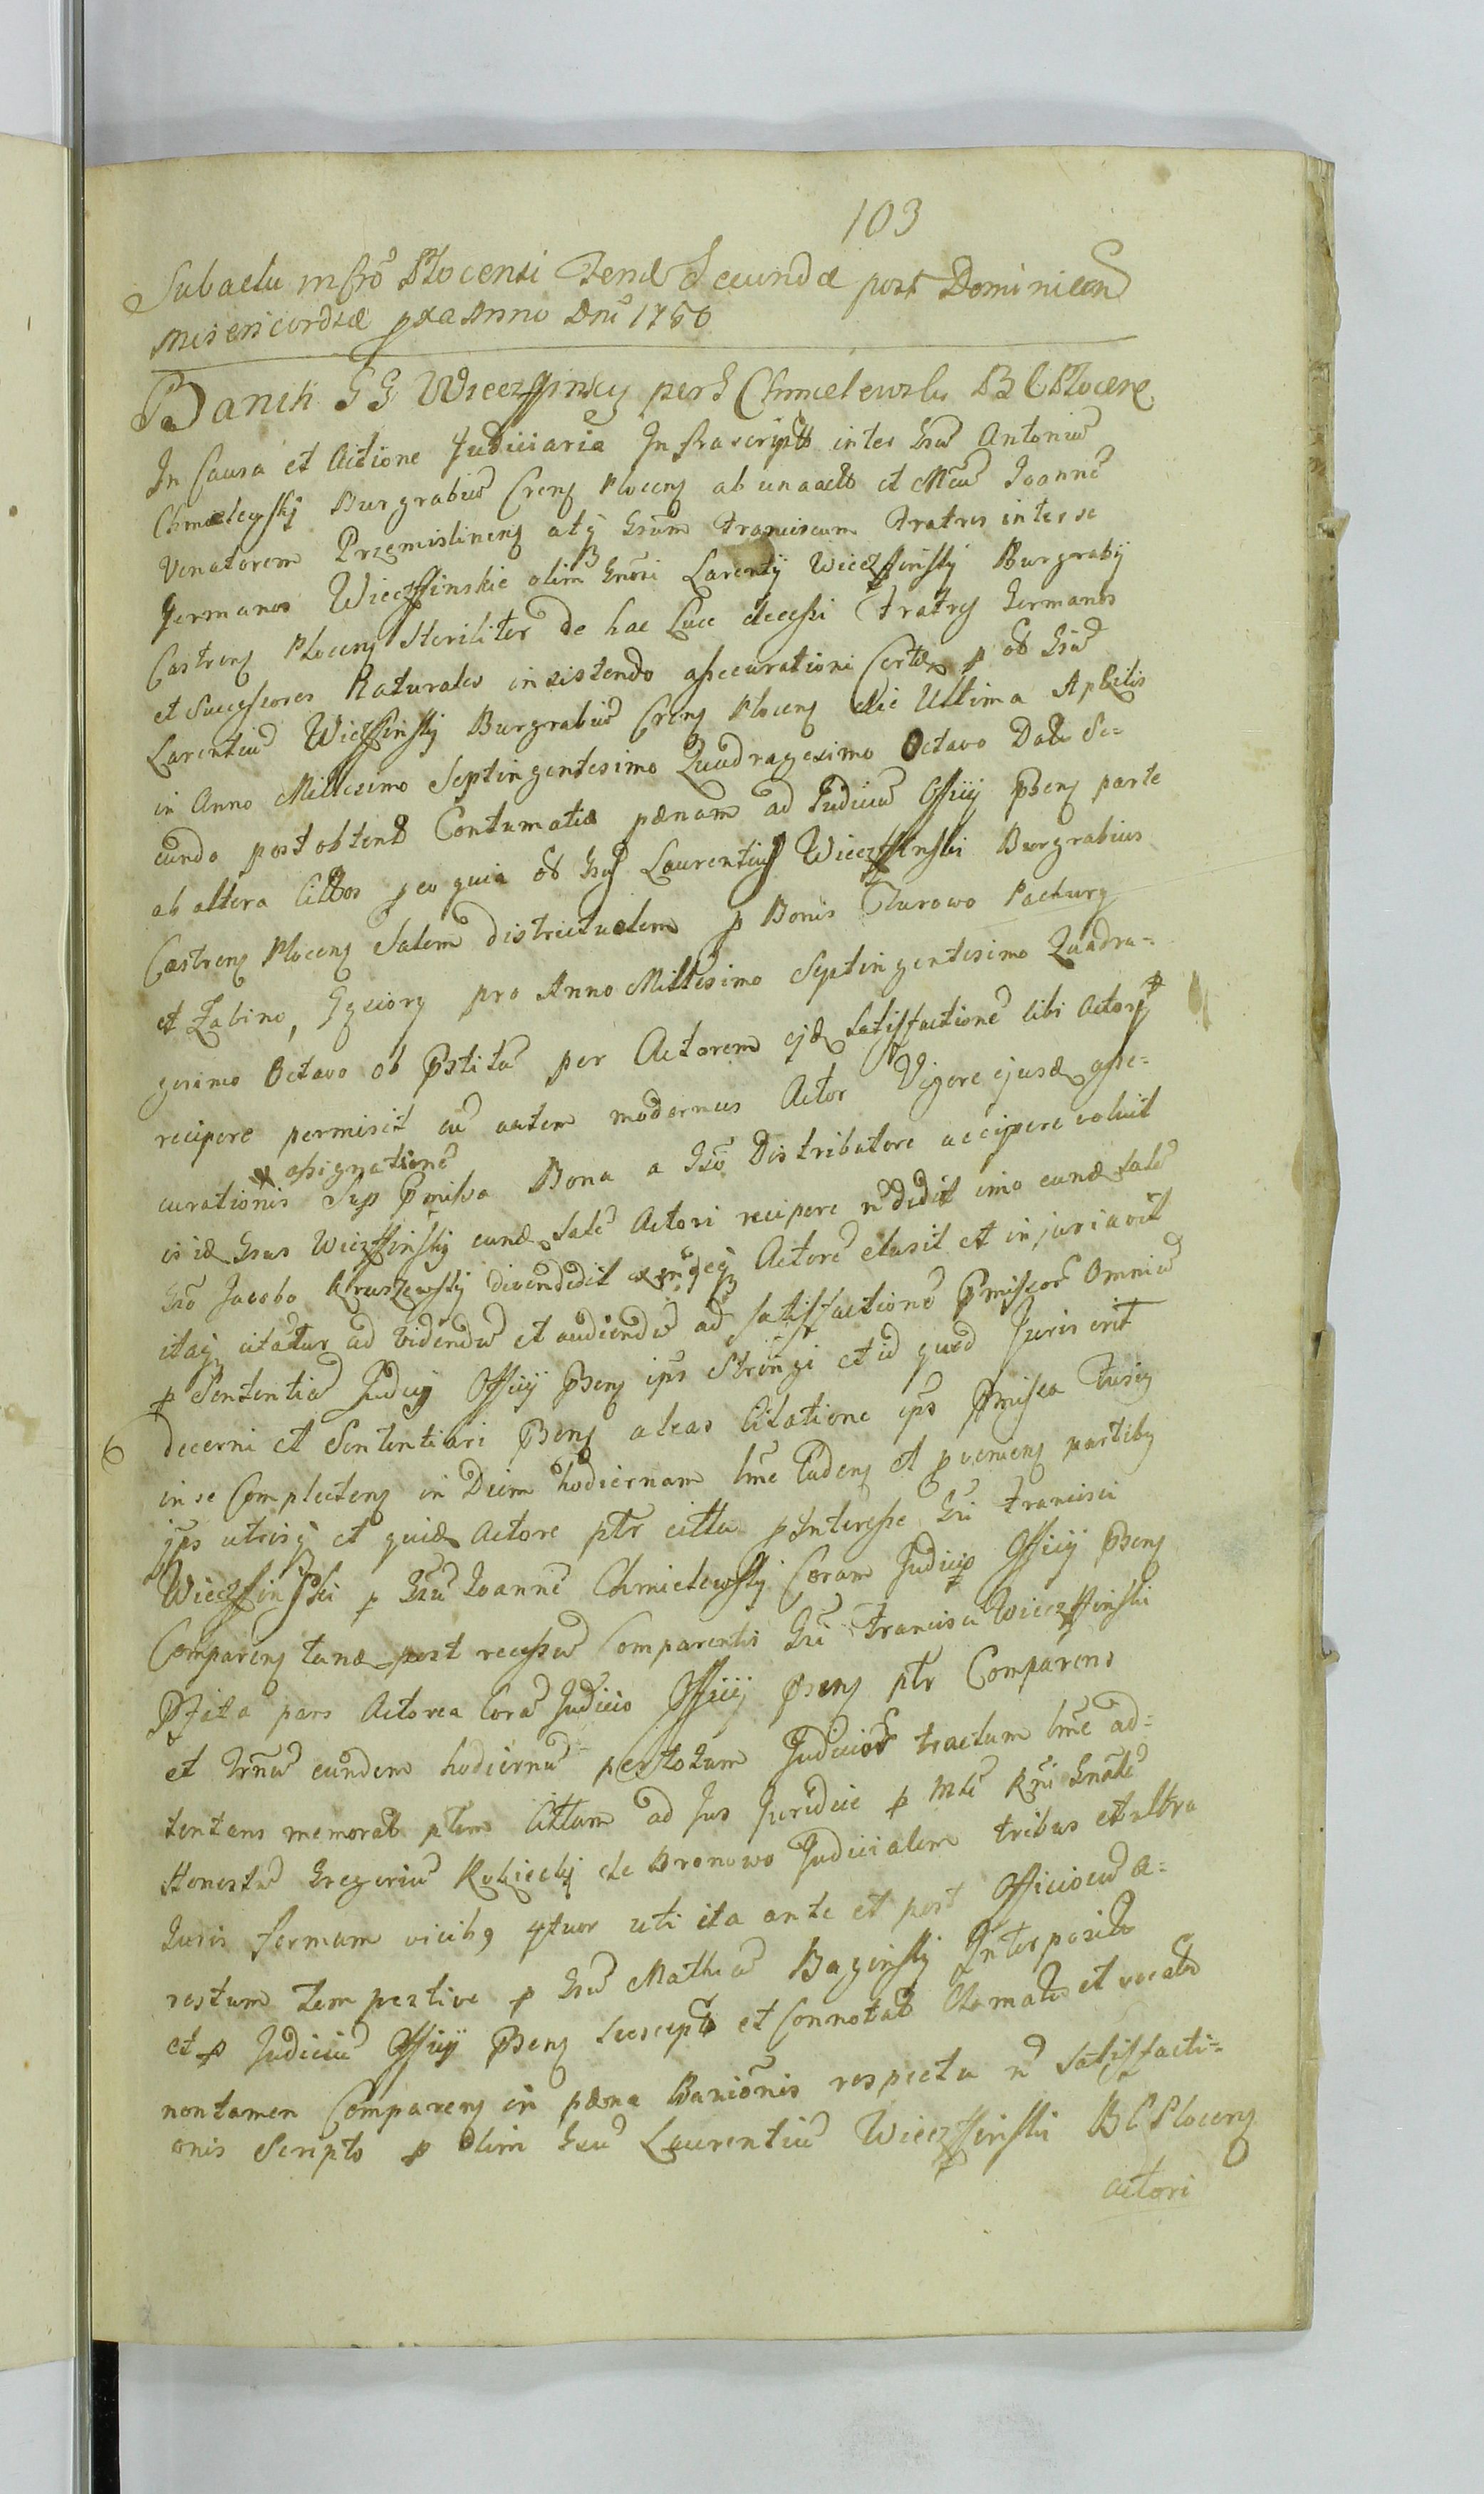 103
Sub actu in Cro Plocensi Feria Secunda post Dominicam
Misericordiæ pxa Anno Dni 1750
Baniti GG Wieczffinscy per G Chmielewski B C Plocens
In Causa et Actione Judiciaria Infrascripta inter Gsum Antoniũ
Chmielewskj Burgrabiũ Crens Plocens ab una acto et Mcũ Joannẽ
Venatorem Przemislinens atq Gsum Franciscum Fratres inter se
Germanos Wieczffinskie olim Gnosi Laurentÿ Wieczffinskj Burgrabÿ
Castrens Plocens Steriliter de hac Luce decessi Fratres Germanos
et Successores Naturales insistendo assecurationi Certæ p od Gsũ
Larentiũ Wieczffinskj Burgrabiũ Crens Plocens die Ultima Aplilis
in Anno Millesimo Septingentesimo Quadragesimo Octavo Data Se=
cundo post obtent Contumatiæ pænam ad Judiciũ Officÿ Pñens parte
ab altera Cittos p eo quia od Gsus Laurentius Wieczffinski Burgrabius
Castrens Plocens Salem districtualem p Bonis Turowo Pachurg
et Zabino, Gsiorg pro Anno Millesimo Septingentesimo Quadra=
gesimo Octavo ob Pstitã per Actorem ejd satisfactionẽ sibi Actori
recipere permisit cũ autem modernus Actor Vigore ejusd asse=
assignationẽ
curationis Sup Pmissa Bona a Gso Distributore accipere voluit
is id Gsus Wieczffinskj eund salẽ Actori recipere ñ dedit imo eund salẽ
Gso Jacobo Kruszewskj divendidit Actorẽ elusit et injuriavit
itaq citatur ad videndũ et audiendũ ad satisfactionẽ Pmissor Omniũ
p Sententiã Judicÿ Officÿ Pñens ips Stringi et id quod Juris erit
decerni et Sententiari Pñens aleas Citatione ips Pmissa fusius
in se Complectens in Diem hodiernam lme Cadens et pveniens partibus
ips utrisq et quid Actore ptr cittu p Interesse Gsi Francisci
Wieczffinski p Gsũ Joannẽ Chmielewskj Coram Judicio Officÿ Pñens
Comparens tand post recessũ Comparentis Gsi Francisci Wieczffinski
Pfata pars Actorea Corã Judicio Officÿ Pñens ptr Comparens
et Trñũ eundem hodiernũ per totum Judicior tractum lme ad=
tentans memorat ptem Cittam ad Jus Juridice p Mlẽ Rgni Gnalẽ
Honestũ Gregoriũ Rokickj de Bronowo Judicialem tribus et ultra
Juris formam vicibq qtuor uti ita ante et post Officiosũ a=
restum tempestive p Gsũ Mathiã Baginskj Interposit
et p Judiciũ Officÿ Pñens Suscept et Connotat Clamata et vocata
non tamen Comparens in pæna Banionis respectu ñ satisfacti=
onis Scripto p olim Gsũ Laurentiũ Wieczffinski B C Plocens
actori